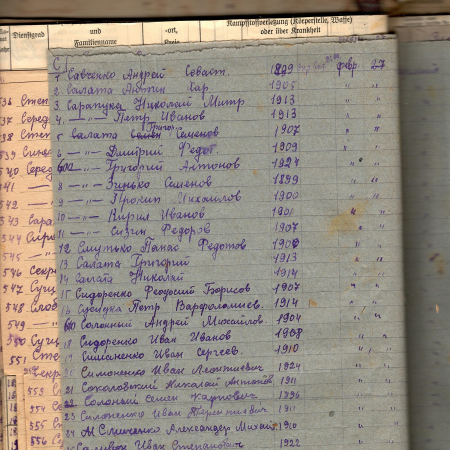 Dienstgrad
und
Familienname
-ort,
Kreis
Kampfstoffverletzung (Körperstelle, Waffe)
oder über Krankheit
С
1 Савченко Андрей Севаст. 1899 февр 27
2 Салата Антин Хар 1905 " "
3. Сарапука Николай Митр 1913 " "
4. — " — Петр Иванов 1913 " "
Григор
5 Салата Семен Семенов 1907 " "
6 — " — Дмитрий Федот 1909 " "
— " — Григорий Антонов 1927 " "
8 — " — Зинько Семенов 1899 " "
9 — " — Прокип Михайлов 1900 " "
10 — " — Кирил Иванов 1901 " "
11 — " — Сизин Федоров 1907 " "
12 Смутько Панас Федотов 1900 " "
13 Салата Григорий 1913 " "
14 Салата Николай 1914 " "
15 Сидоренко Феодосий Борисов 1907 " "
16 Петр Варфоломиев. 1914 " "
Солонный Андрей Михайлов. 1904 " "
18 Сидоренко Иван Иванов 1908 " "
Симоненко Иван Сергеев. 1910 " "
20 Симоненко Иван Леонтиевич 1924 " "
21 Соколовский Николай Антонов 1911 " "
22 Солоный Семен Карпович 1896 " "
23 Симоненко Иван Терентиевич 1911 " "
24 Александер Михайл. 1920 " "
Иван Степанович 1922 " "
536 Степ
537 Серед
538 Степ
539 Сине
540 Серед
541 — "
542 — "
543 Сара
544
545 — "
546 Секре
547 Сущ
548
549 — "
550 Суч
551 Сте
553
554
555
556